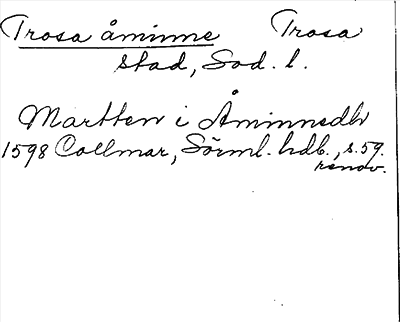 Trosa åminne Trosa
stad, Söd. l.
Martten i Åminnedh
1598 Collmar, Sörml. hdb., s. 59.
renov.